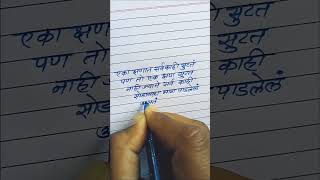 एका क्षणात सर्वकाही सुटतं
पण तो एक क्षण सुटत
नाही ज्याने सर्व काही
सोडायला भाग पाडलेलं